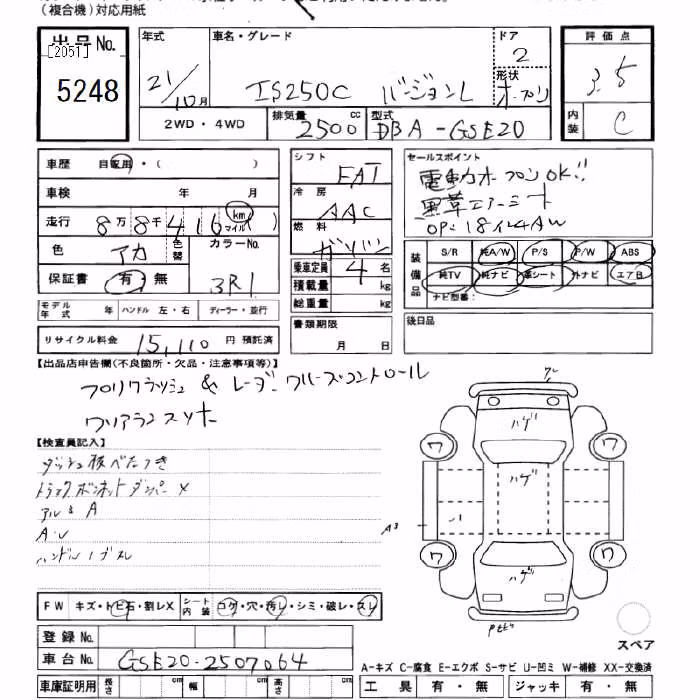 （複合機）対応用紙
出品No.
[2051]
5248
年式
21/10月
車名・グレード
IS250C バージョンL
ドア
2
形状
オープン
評価点
3.5
内装
C
2WD・4WD
排気量
2500 cc
型式
DBA-GSE20
車歴 自家用・( )
車検 年 月
走行 8万8千416 km マイル( )
色 アカ 色替
カラーNo.
3R1
保証書 有・無
モデル年式 年 ハンドル 左・右 ディーラー・並行
リサイクル料金 15,110 円 預託済
シフト
FAT
冷房
AAC
燃料
ガソリン
乗車定員 4 名
積載量 kg
総重量 kg
書類期限
月 日
セールスポイント
電動オープンOK!!
黒革エアーシート
OP・18インチAW
装備品
S/R 純A/W P/S P/W ABS
純TV 純ナビ 革シート 外ナビ エアB
ナビ型番：
後日品
【出品店申告欄(不良箇所・欠品・注意事項等)】
プリクラッシュ & レーダークルーズコントロール
クリアランスソナー
【検査員記入】
ダッシュ板べたつき
トランクボンネットダンパー×
アルミA
A・U
ハンドルノブスレ
FW キズ・トビ石・割レX
シート内装 コゲ・穴・汚レ・シミ・破レ・スレ
ハゲ
ハゲ
ハゲ
ワ
ワ
ワ
ワ
A3
スペア
登録No.
車台No. GSE20-2507064
車庫証明用 長さ cm 幅 cm 高さ cm
A-キズ C-腐食 E-エクボ S-サビ U-凹ミ W-補修 XX-交換済
工具 有・無 ジャッキ 有・無